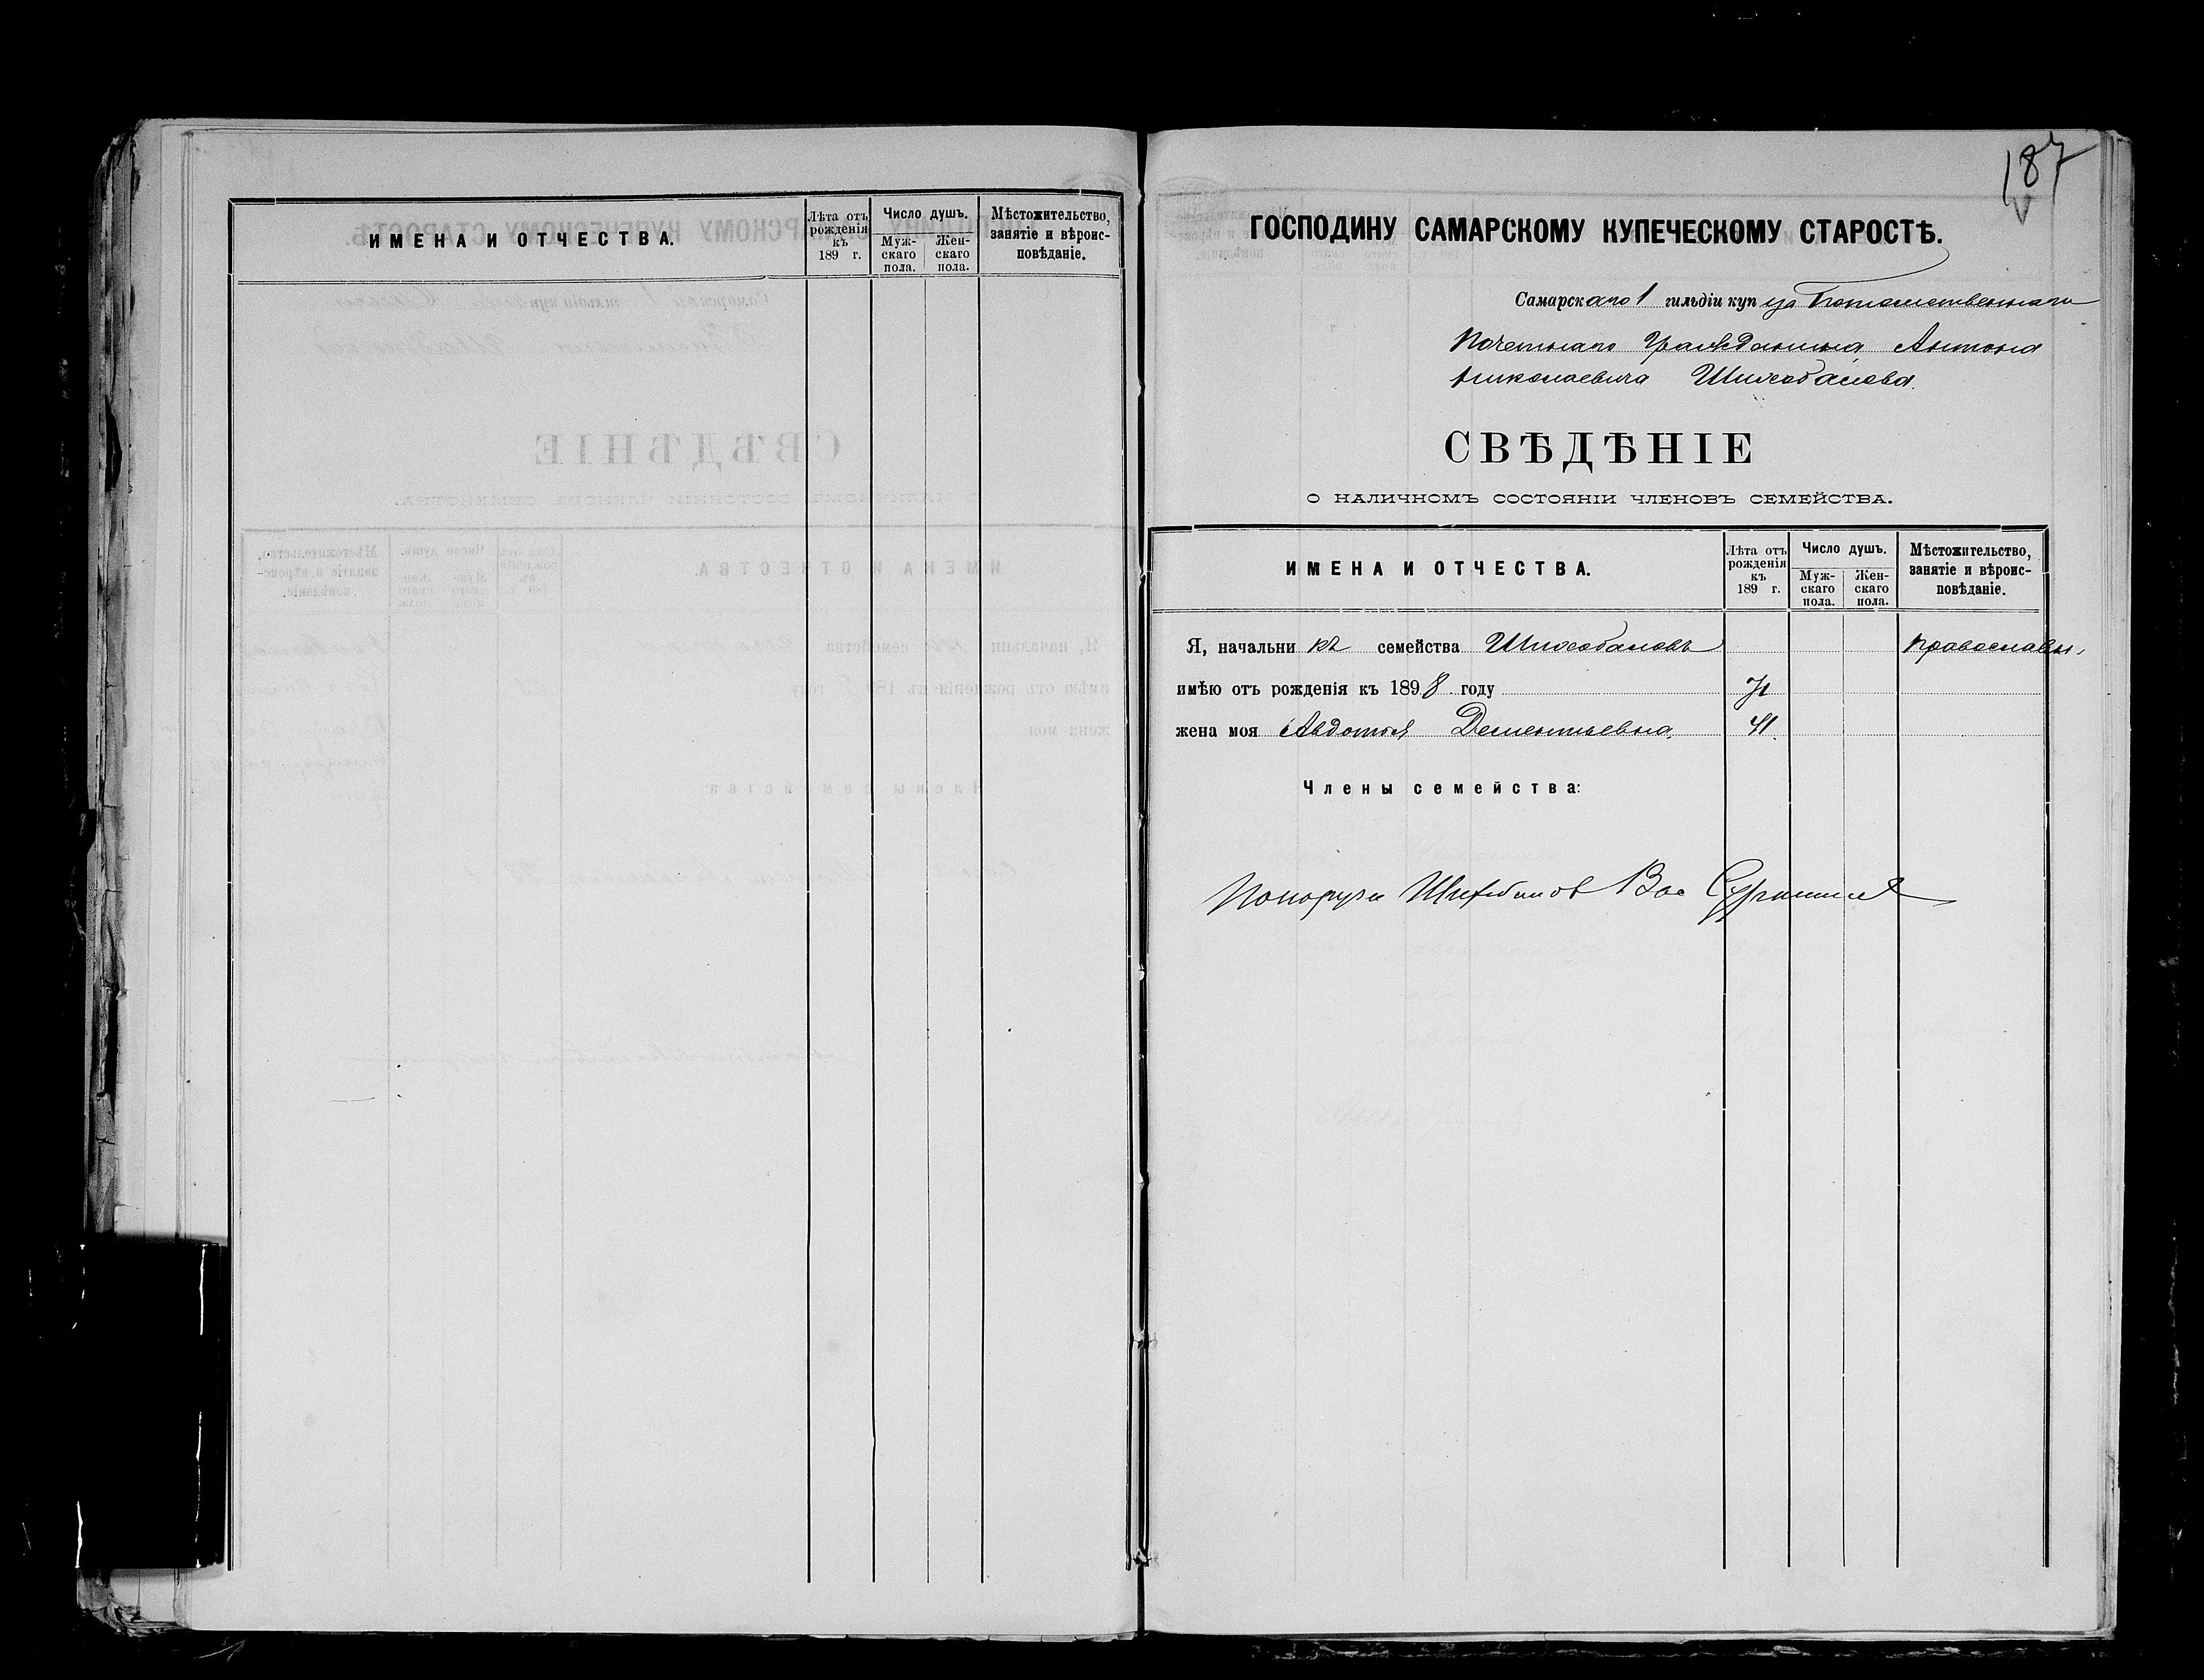 ИМЕНА И ОТЧЕСТВА.
Лѣта отъ рожденія къ 189 г.
Число душъ.
Мужскаго пола.
Женскаго пола.
Мѣстожительство, занятіе и вѣроисповѣданіе.
187
ГОСПОДИНУ САМАРСКОМУ КУПЕЧЕСКОМУ СТАРОСТѢ.
Самарскаго 1 гильдіи купца Потомственнаго
Почетнаго Гражданина Антона
Николаевича Шихобалова.
СВѢДѢНІЕ
О НАЛИЧНОМЪ СОСТОЯНІИ ЧЛЕНОВЪ СЕМЕЙСТВА.
ИМЕНА И ОТЧЕСТВА.
Лѣта отъ рожденія къ 189 г.
Число душъ.
Мужскаго пола.
Женскаго пола.
Мѣстожительство, занятіе и вѣроисповѣданіе.
Я, начальникъ семейства Шихобаловъ Православн.
имѣю отъ рожденія къ 1898 году
жена моя Авдотья Дементьевна 41.
Члены семейства:
Шихобалов Вас